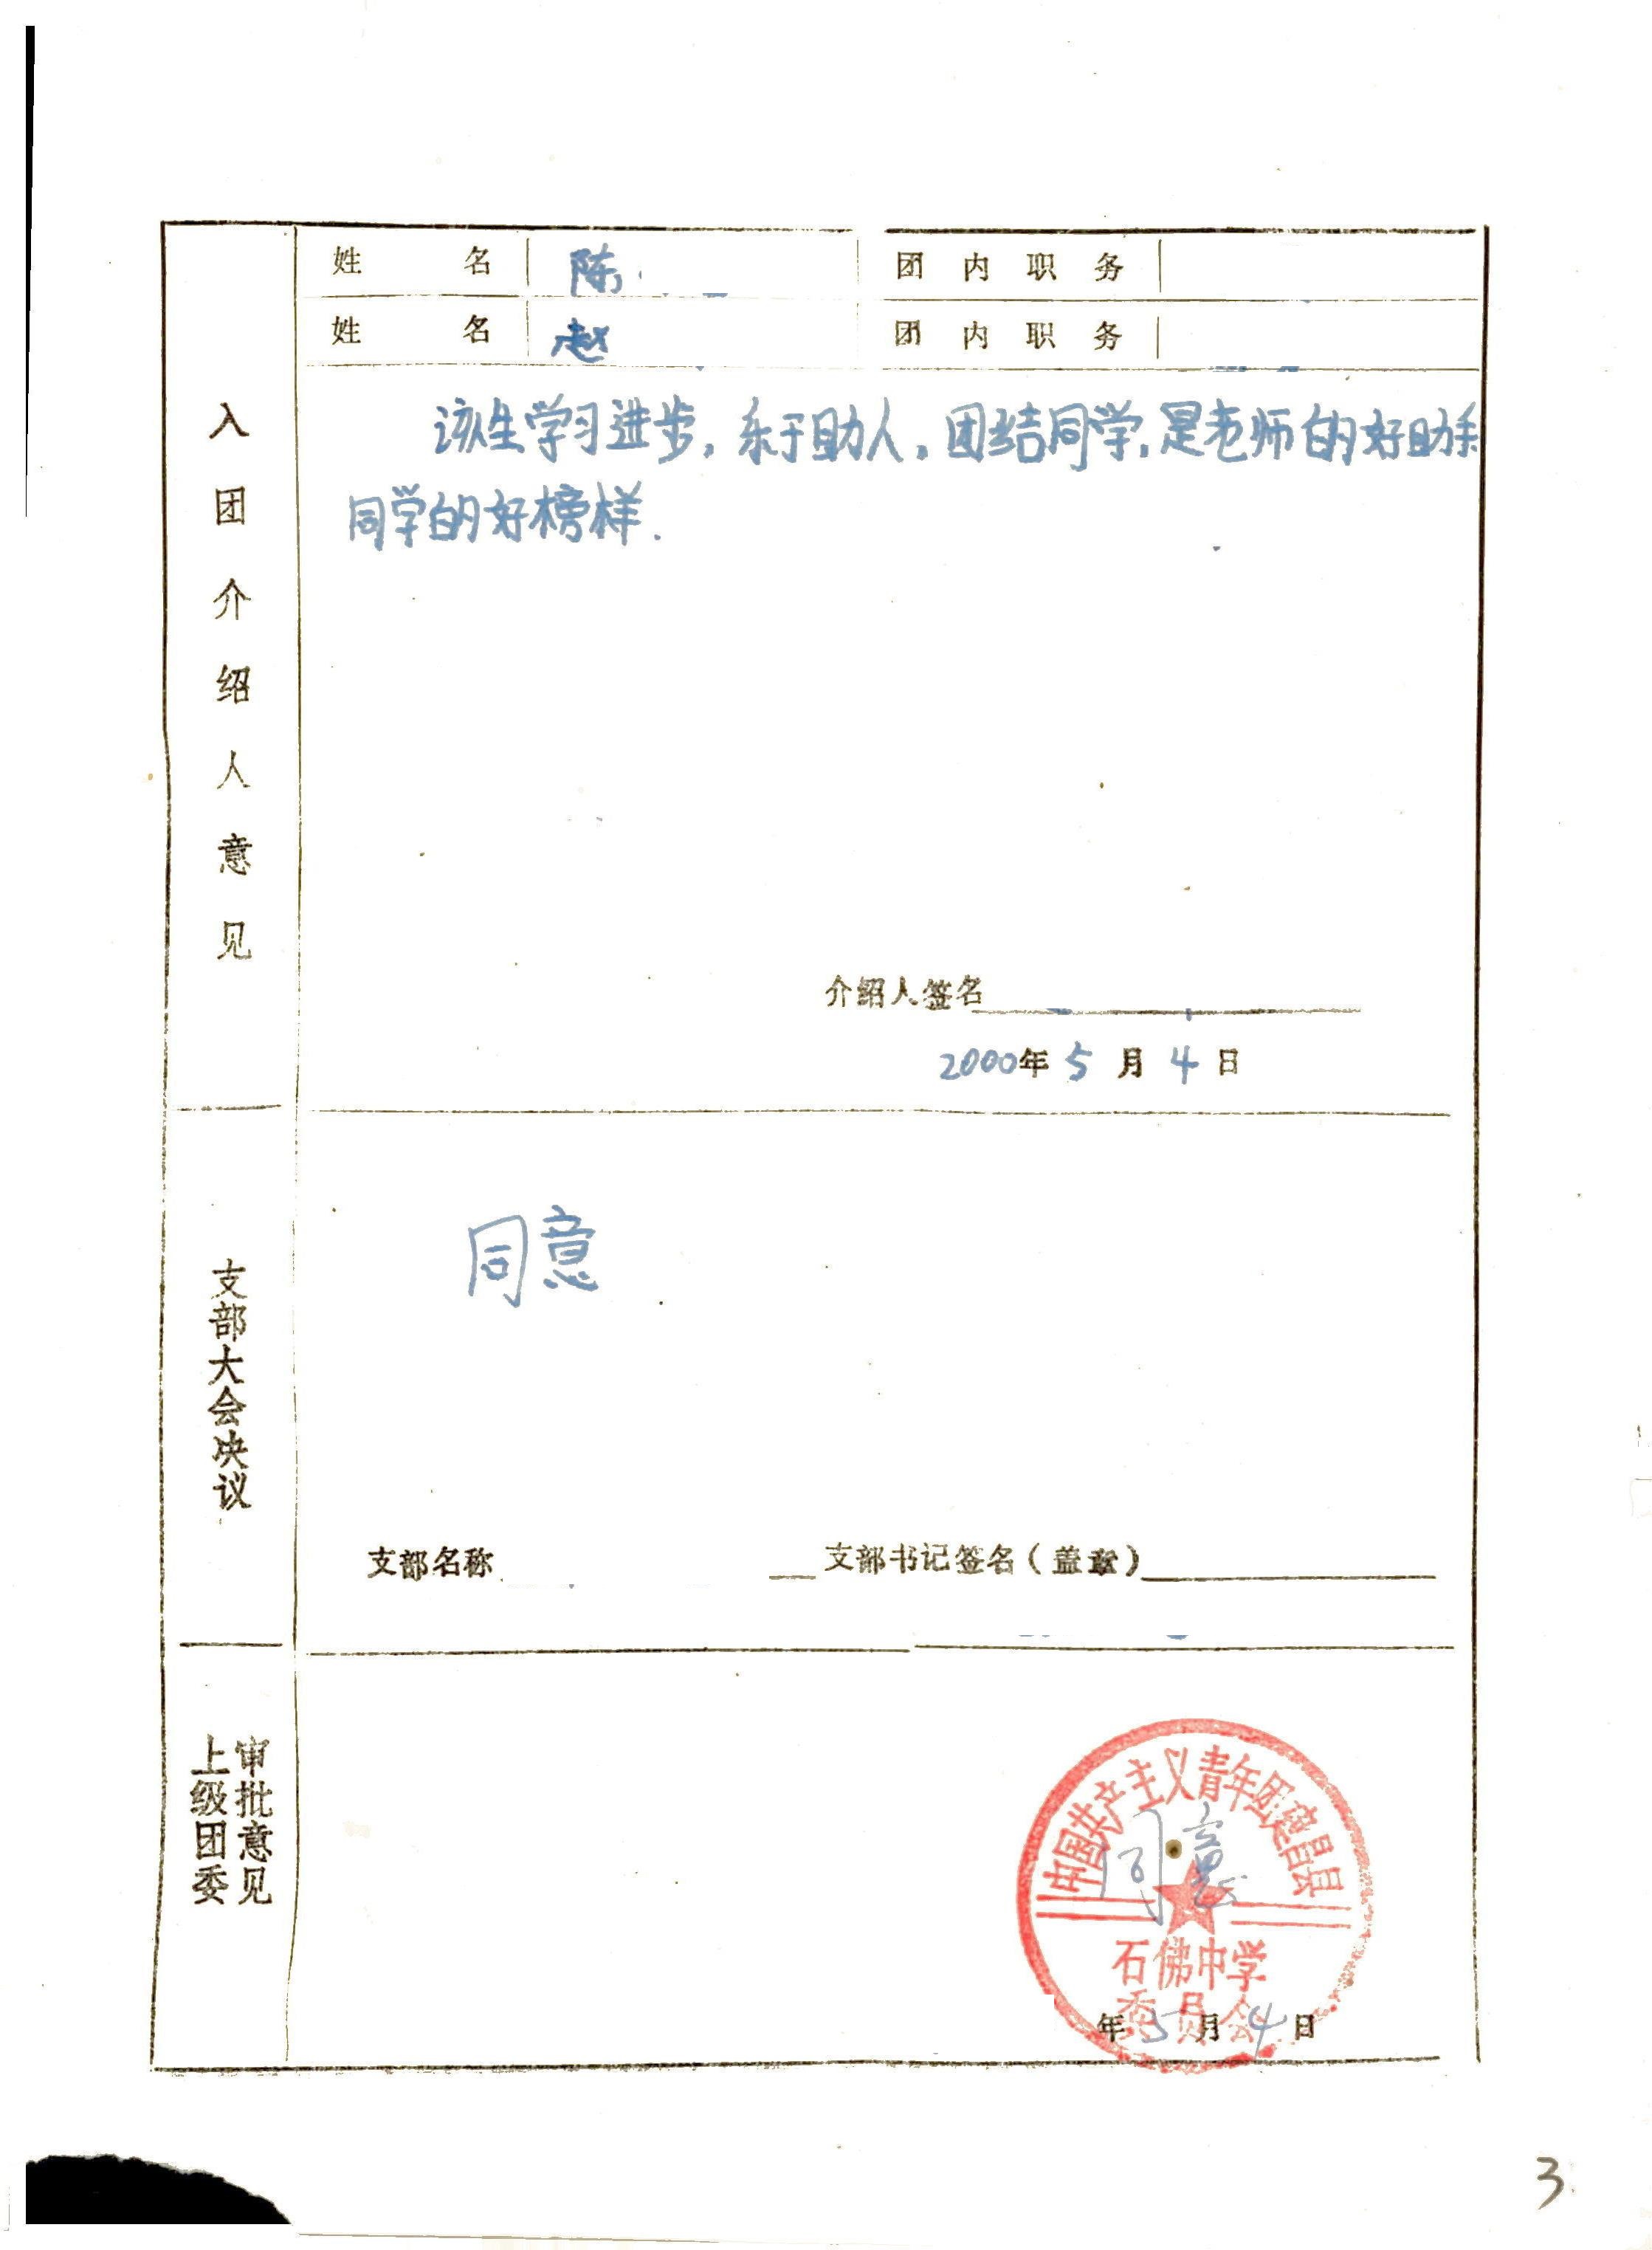 姓名 陈 团内职务
姓名 赵 团内职务
入团介绍人意见
该生学习进步,乐于助人,团结同学,是老师的好助手
同学的好榜样.
介绍人签名
2000年5月4日
支部大会决议
同意
支部名称 支部书记签名(盖章)
上级团委
审批意见
中国共产主义青年团建昌县
同意
石佛中学
委员会
年5月4日
3